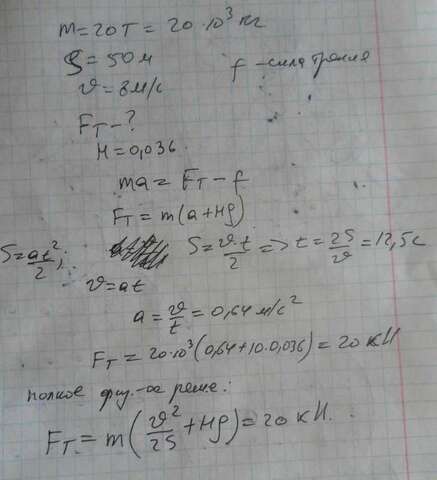 m=20т=20·10³кг
S=50м
f-сила трения
v=8м/с
Fт-?
M=0,036
ma=Fт-f
Fт=m(a+Mg)
S=at²/2;
S=vt/2=>t=2S/v=12,5с
v=at
a=v/t=0,64м/с²
Fт=20·10³(0,64+10·0,036)=20кН
полное физ-ое реше:
Fт=m(v²/2S+Mg)=20кН.